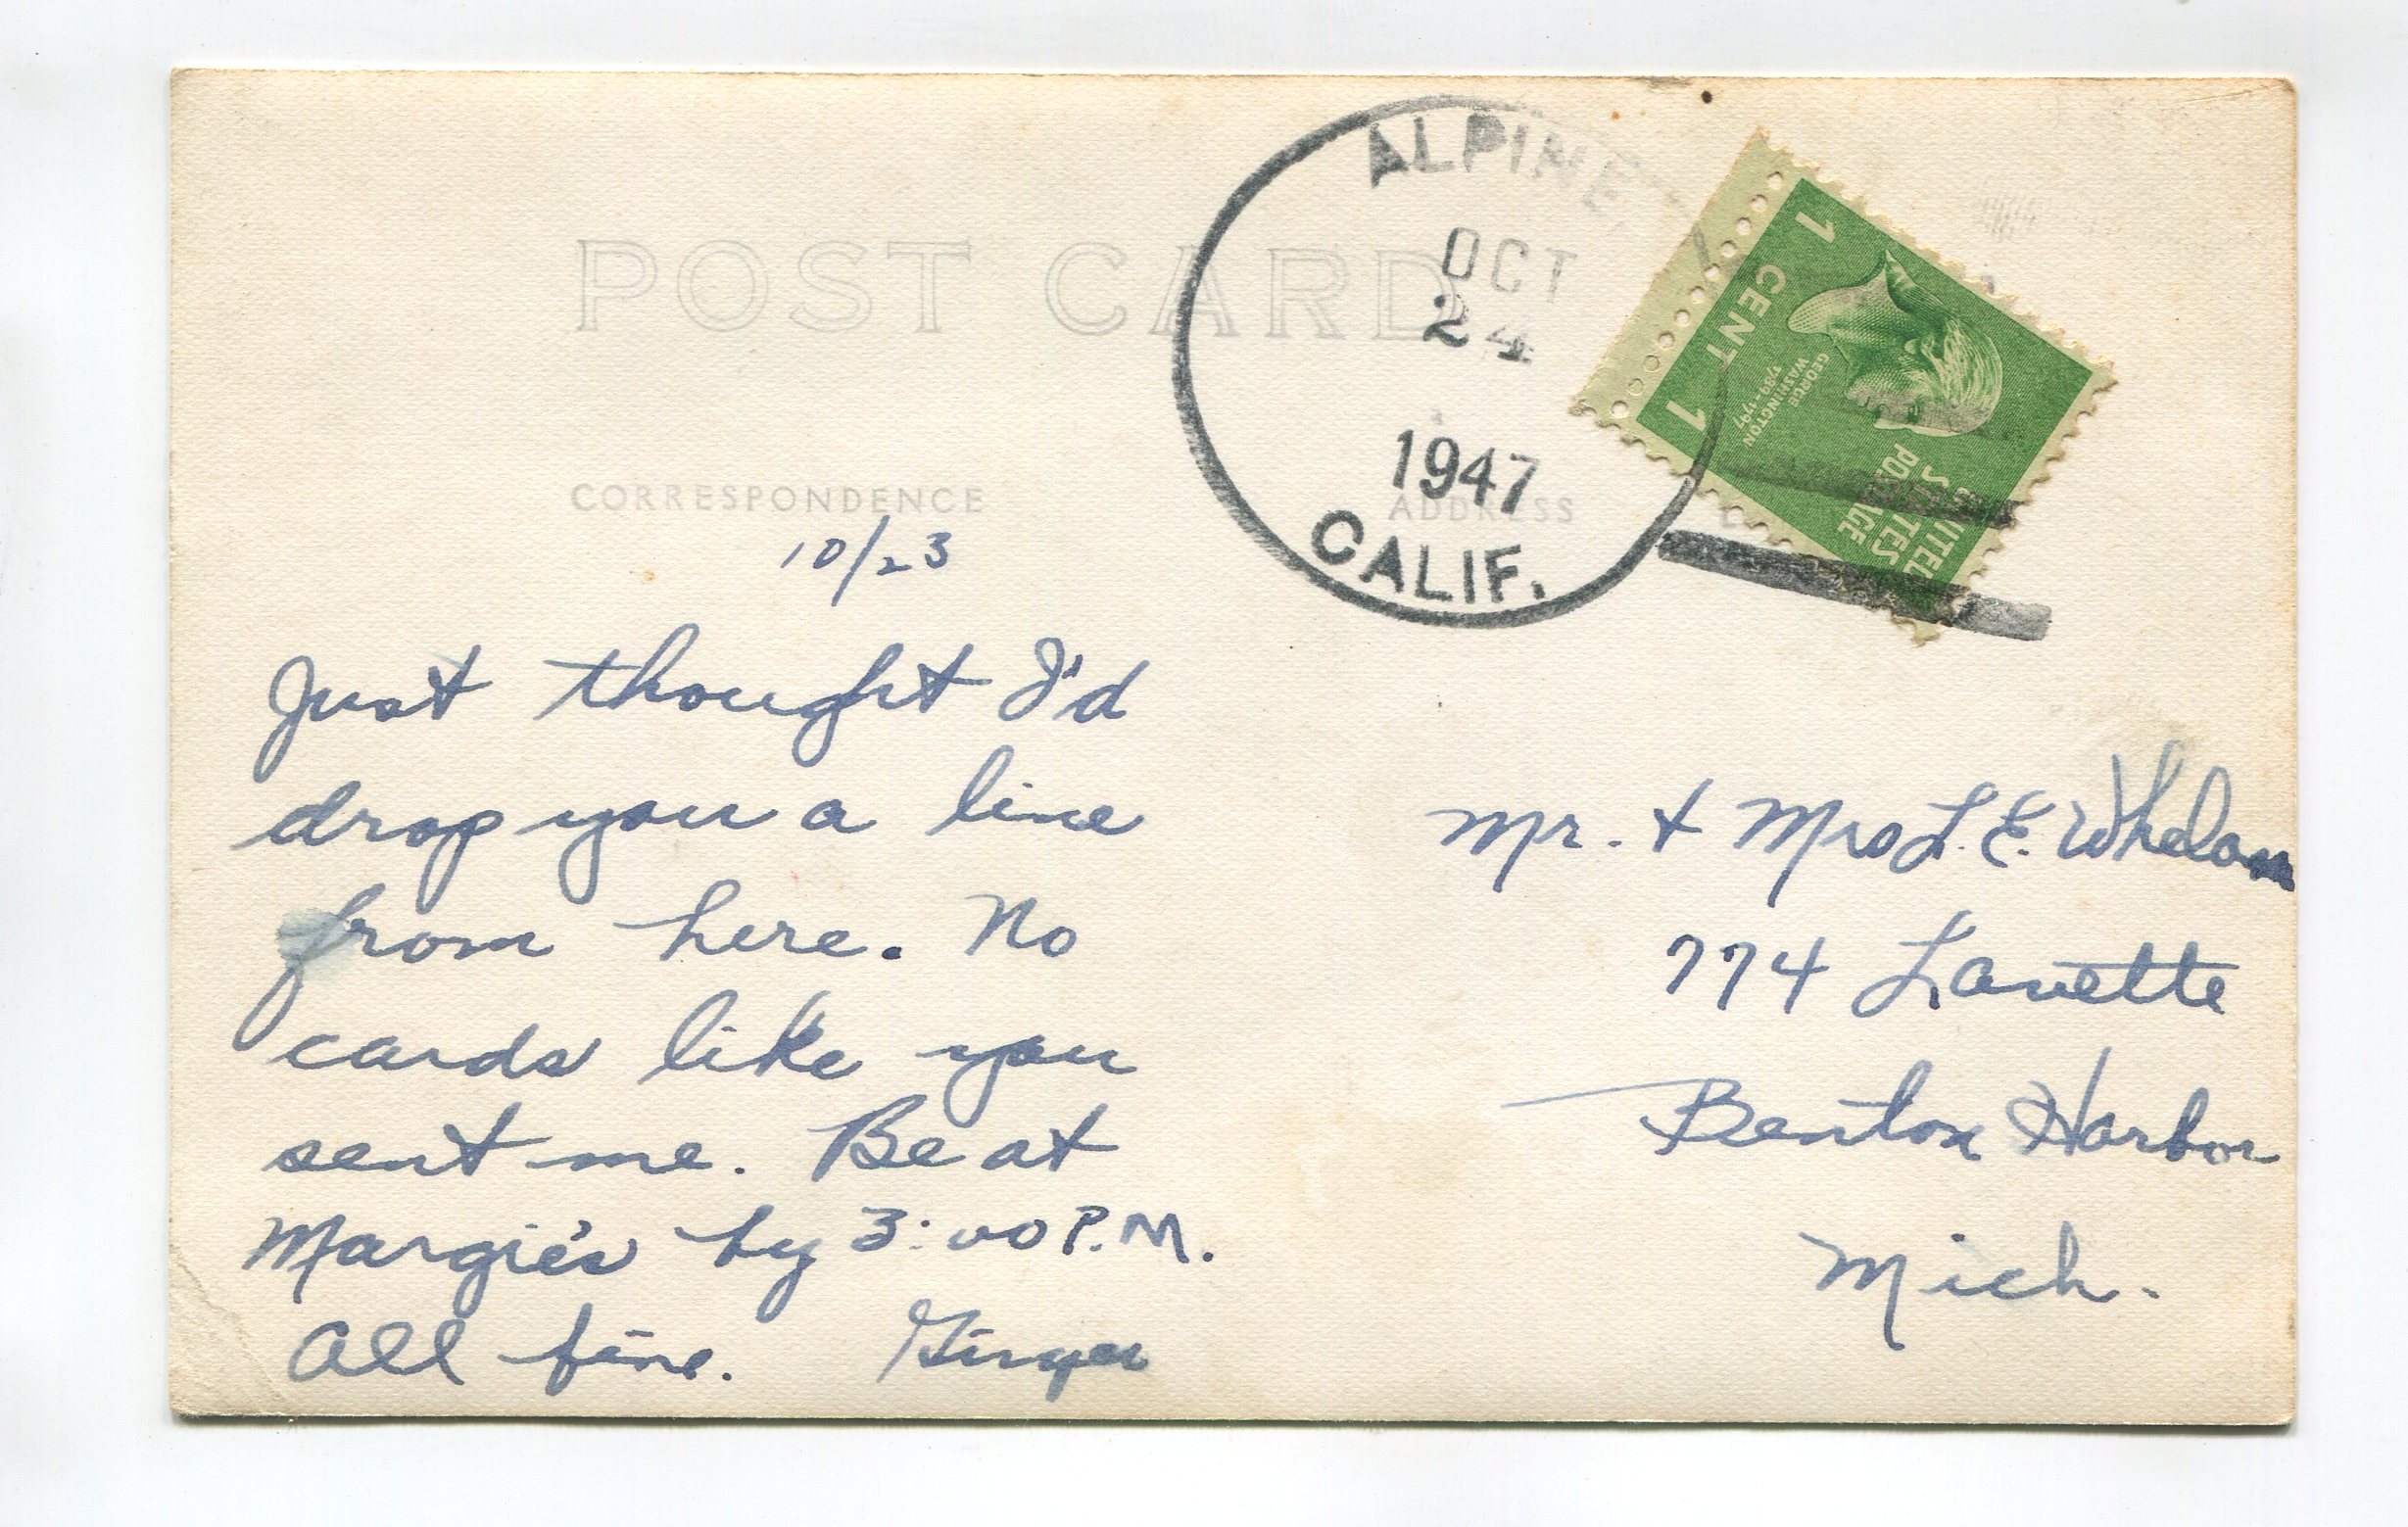 POST CARD
CORRESPONDENCE
ADDRESS
ALPINE
OCT
24
1947
CALIF.
1
CENT
1
GEORGE
WASHINGTON
1789-1797
UNITED
STATES
POSTAGE
10/23
Just thought I'd
drop you a line
from here. No
cards like you
sent me. Be at
Margie's by 3:00 P.M.
All fine. Ginger
Mr. + Mrs L. E. Whelan
774 Lavette
Benton Harbor
Mich.